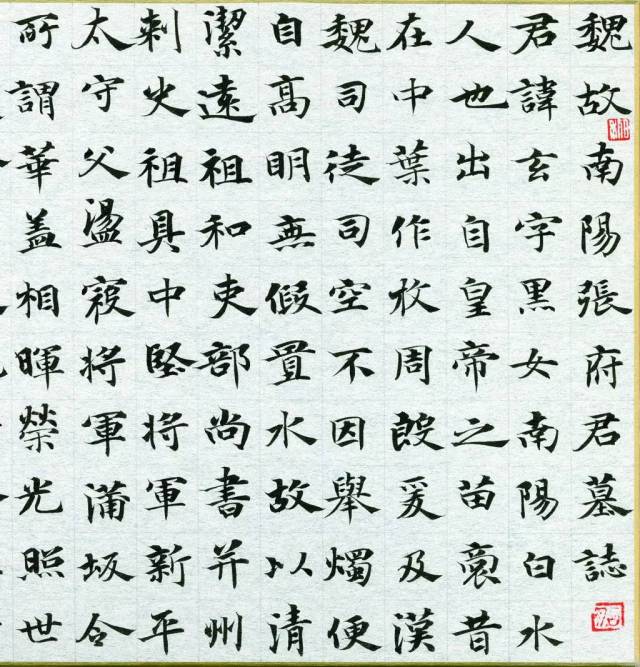 魏故南陽張府君墓誌
君諱玄字黑女南陽白水
人也出自皇帝之苗裔昔
在中葉作牧周殷爰及漢
魏司徒司空不因舉燭便
自高明無假置水故以清
潔遠祖和吏部尚書并州
刺史祖具中堅將軍新平
太守父盪寇將軍蒲坂令
所謂華蓋相暉榮光照世